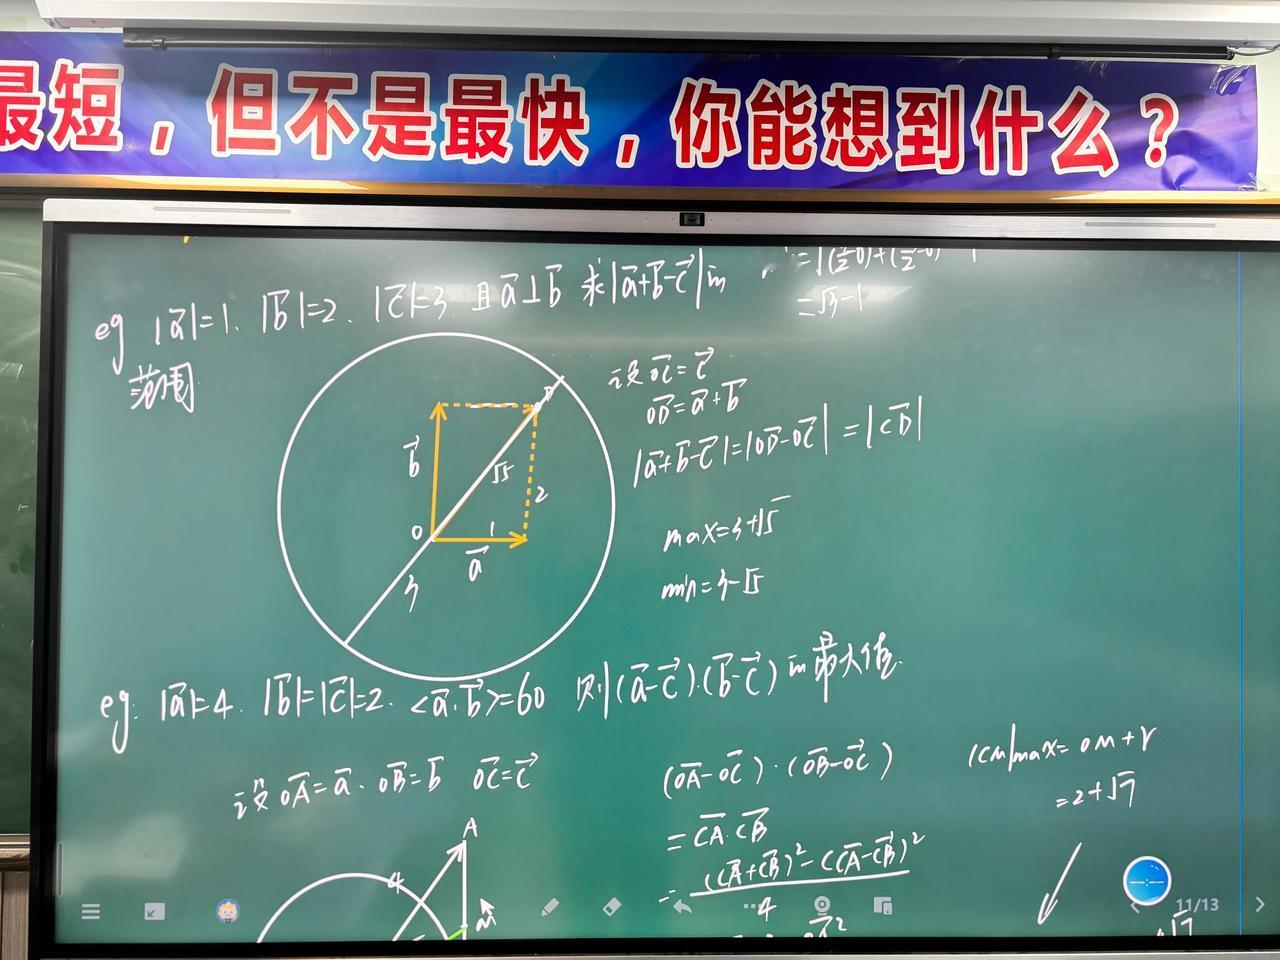 最短，但不是最快，你能想到什么？
=√3-1
eg |a⃗|=1. |b⃗|=2. |c⃗|=3 且a⃗⊥b⃗ 求|a⃗+b⃗-c⃗|的
范围
设 OC⃗=c⃗
OD⃗=a⃗+b⃗
|a⃗+b⃗-c⃗|=|OD⃗-OC⃗|=|CD⃗|
b⃗
√5
2
0
1
a⃗
3
max=3+√5
min=3-√5
eg: |a⃗|=4. |b⃗|=|c⃗|=2. <a⃗.b⃗>=60 则(a⃗-c⃗).(b⃗-c⃗)的最大值.
设 OA⃗=a⃗. OB⃗=b⃗ OC⃗=c⃗
(OA⃗-OC⃗)·(OB⃗-OC⃗)
=CA⃗.CB⃗
=((CA⃗+CB⃗)²-(CA⃗-CB⃗)²)/4
|CM|max=OM+r
=2+√7
A
4
M
11/13
√7